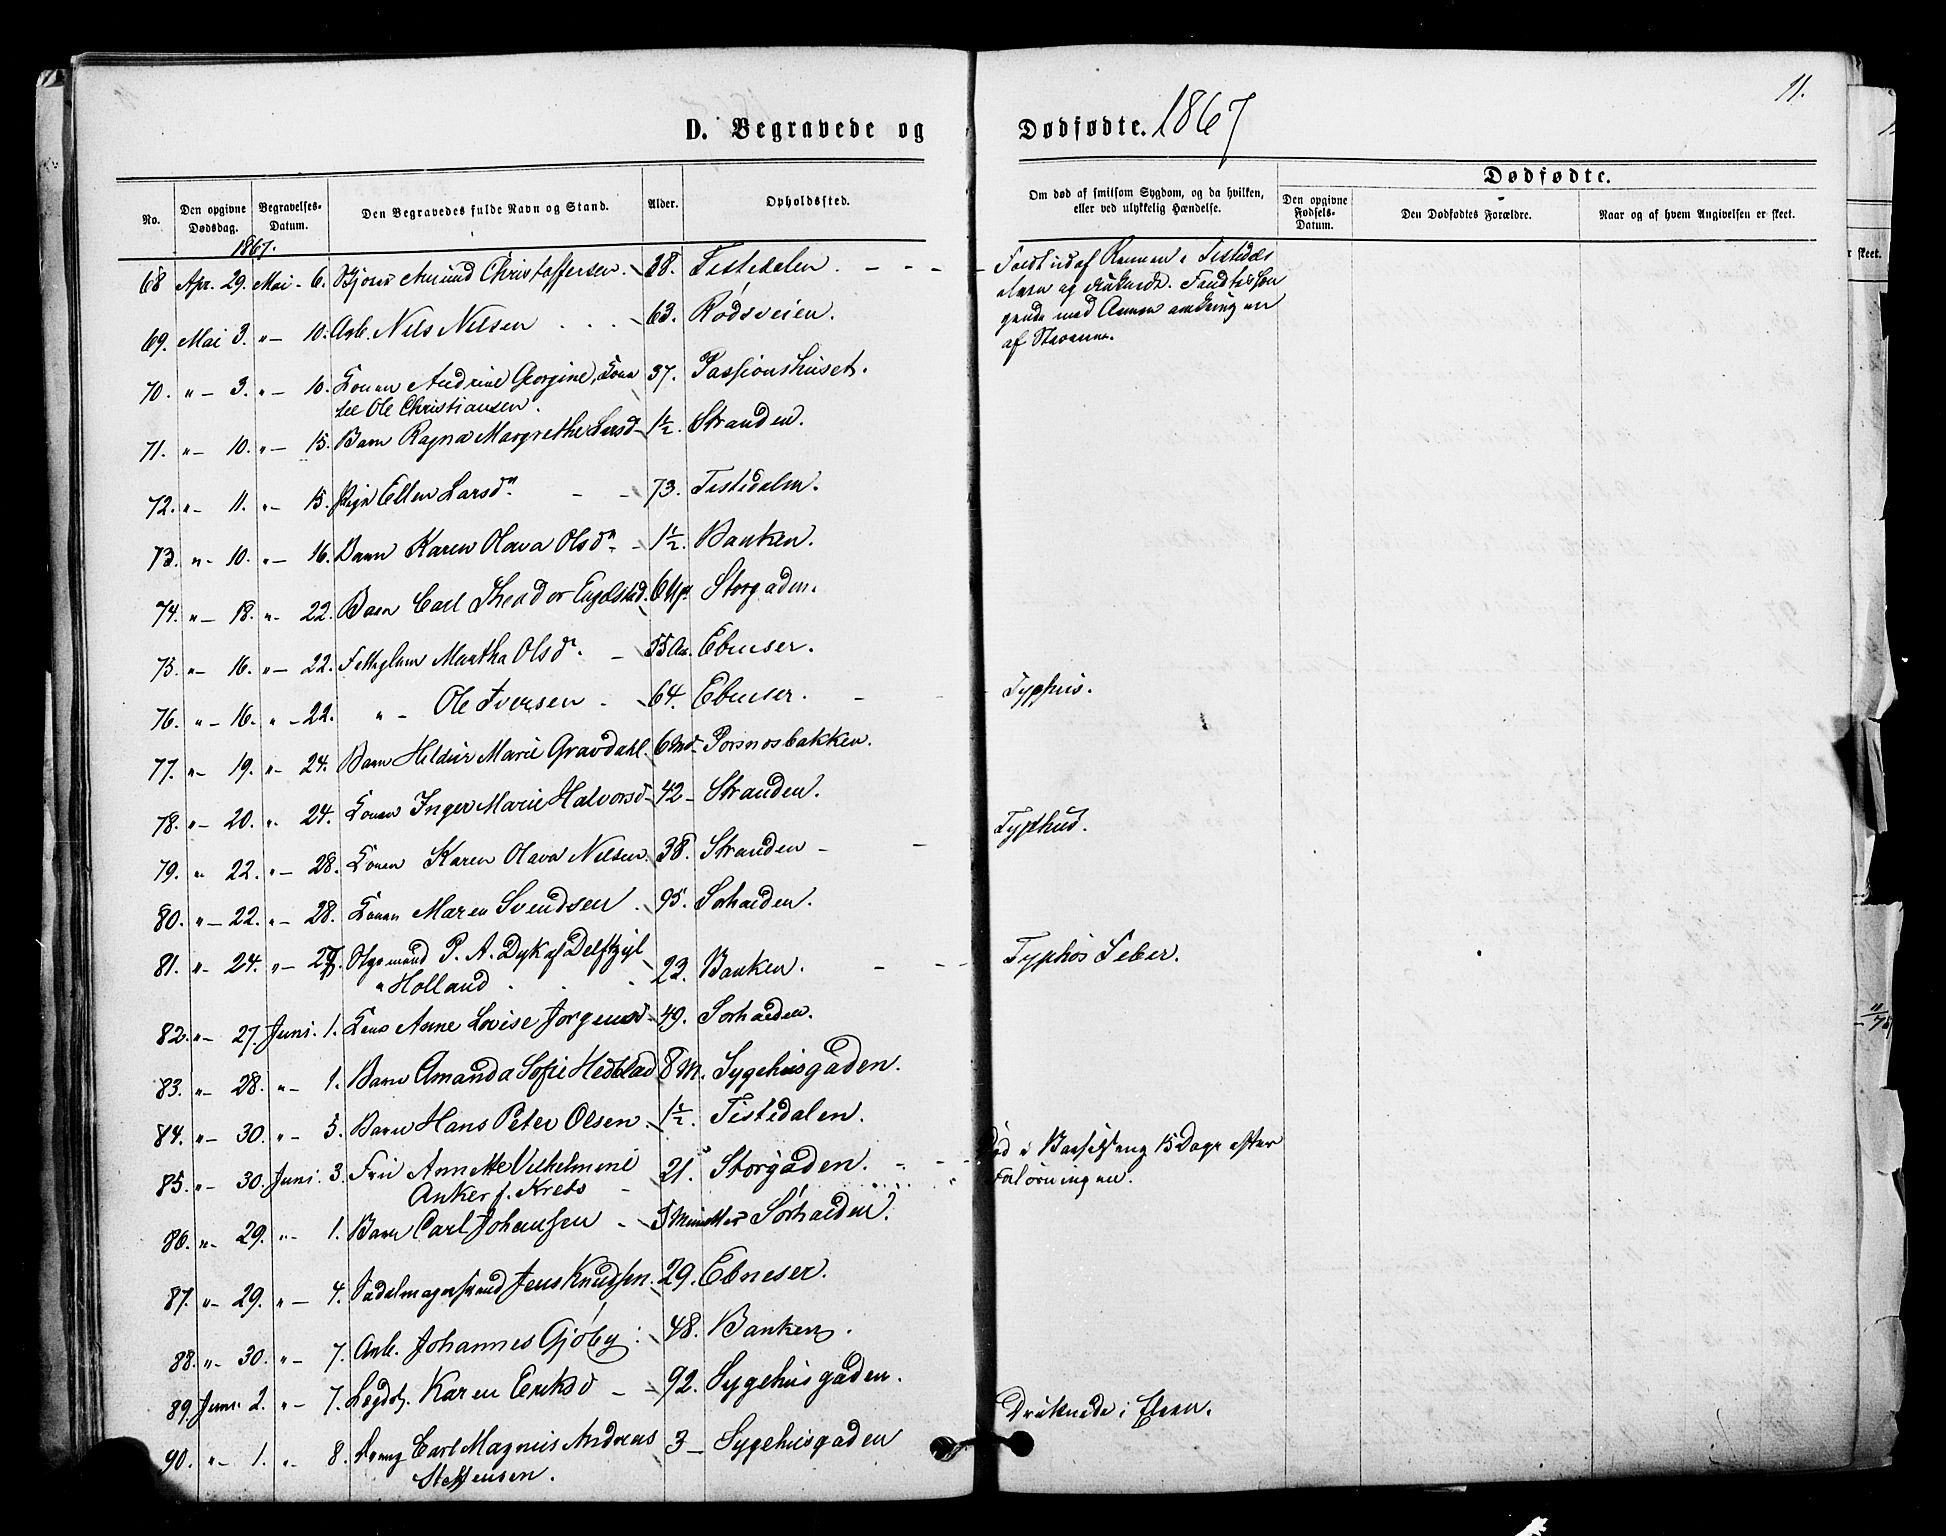 11.
D. Begravede og Dødfødte. 1867
No.
Den opgivne Dødsdag.
Begravelses-Datum.
Den Begravedes fulde Navn og Stand.
Alder.
Opholdssted.
Om død af smitsom Sygdom, og da hvilken, eller ved ulykkelig Hændelse.
Dødfødte.
Den opgivne Fødsels-Datum.
Den Dødfødtes Forældre.
Naar og af hvem Angivelsen er skeet.
1867.
68 Apr. 29. Mai - 6. Amund Christoffersen. 38. Tistedalen. Faldt ud af Rennen i Tistedals
elven og druknede.
69. Mai 3. " - 10. Arb. Nils Nilsen 63. Rødsveien.
af Stavanne.
70. " - 3. " - 10. Konen Andrine Georgine, Kone 37. Passionshuset.
til Ole Christiansen.
71. " - 10. " - 15. Barn Ragna Margrethe Larsd 1½. Stranden.
72. " - 11. " - 15. Pige Ellen Larsdn. 73. Tistedalen.
73. " - 10. " - 16. Barn Karen Olava Olsdn 1½. Banken.
74. " - 18. " - 22. Barn Carl Theodor Engelstad. 6 Storgaden.
75. " - 16. " - 22. Fattiglem Martha Olsdn. 55 Aar. Ebneser.
76. " - 16. " - 22. " - Ole Iversen 64. Ebneser. Typhus.
77. " - 19. " - 24. Barn Hildur Marie Gravdahl. 6 Md. Porsnesbakken.
78. " - 20. " - 24. Konen Inger Marie Halvorsd 42 - Stranden.
79. " - 22. " - 28. Konen Karen Olava Nilsen. 38. Stranden - Typhus.
80. " - 22. " - 28. Konen Maren Svendsen 95. Sørhalden.
81. " - 24. " - 27. Styrmand P. A. Dyk af Delftzyl
i Holland 23. Banken. Typhøs Feber.
82. " - 27. Juni. 1. Anne Lovise Jørgensd. 49. Sørhalden.
83. " - 28. " - 1. Barn Amanda Sofie Hedblad 8 M. Sygehusgaden.
84. " - 30. " - 5. Barn Hans Peter Olsen. 1½. Tistedalen.
85. " - 30. Juni. 3. Fru Annette Vilhelmine 21. Storgaden. Død i Barselseng 15 Dage efter
Anker f. Krebs Forløsningen.
86. " - 29. " - 1. Barn Carl Johansen 5 Minutter Sørhalden.
87. " - 29. " - 4. Sadelmagersvend Jens Knudsen. 29. Ebneser.
88. " - 30. " - 7. Arb. Johannes Gjøby. 48. Banken.
89. Juni 2. " - 7. Lægdsl. Karen Eriksd 92. Sygehusgaden.
90. " - 1. " - 8. Dreng Carl Magnus Andreas 3 - Sygehusgaden Druknede i Elven.
Steffensen.